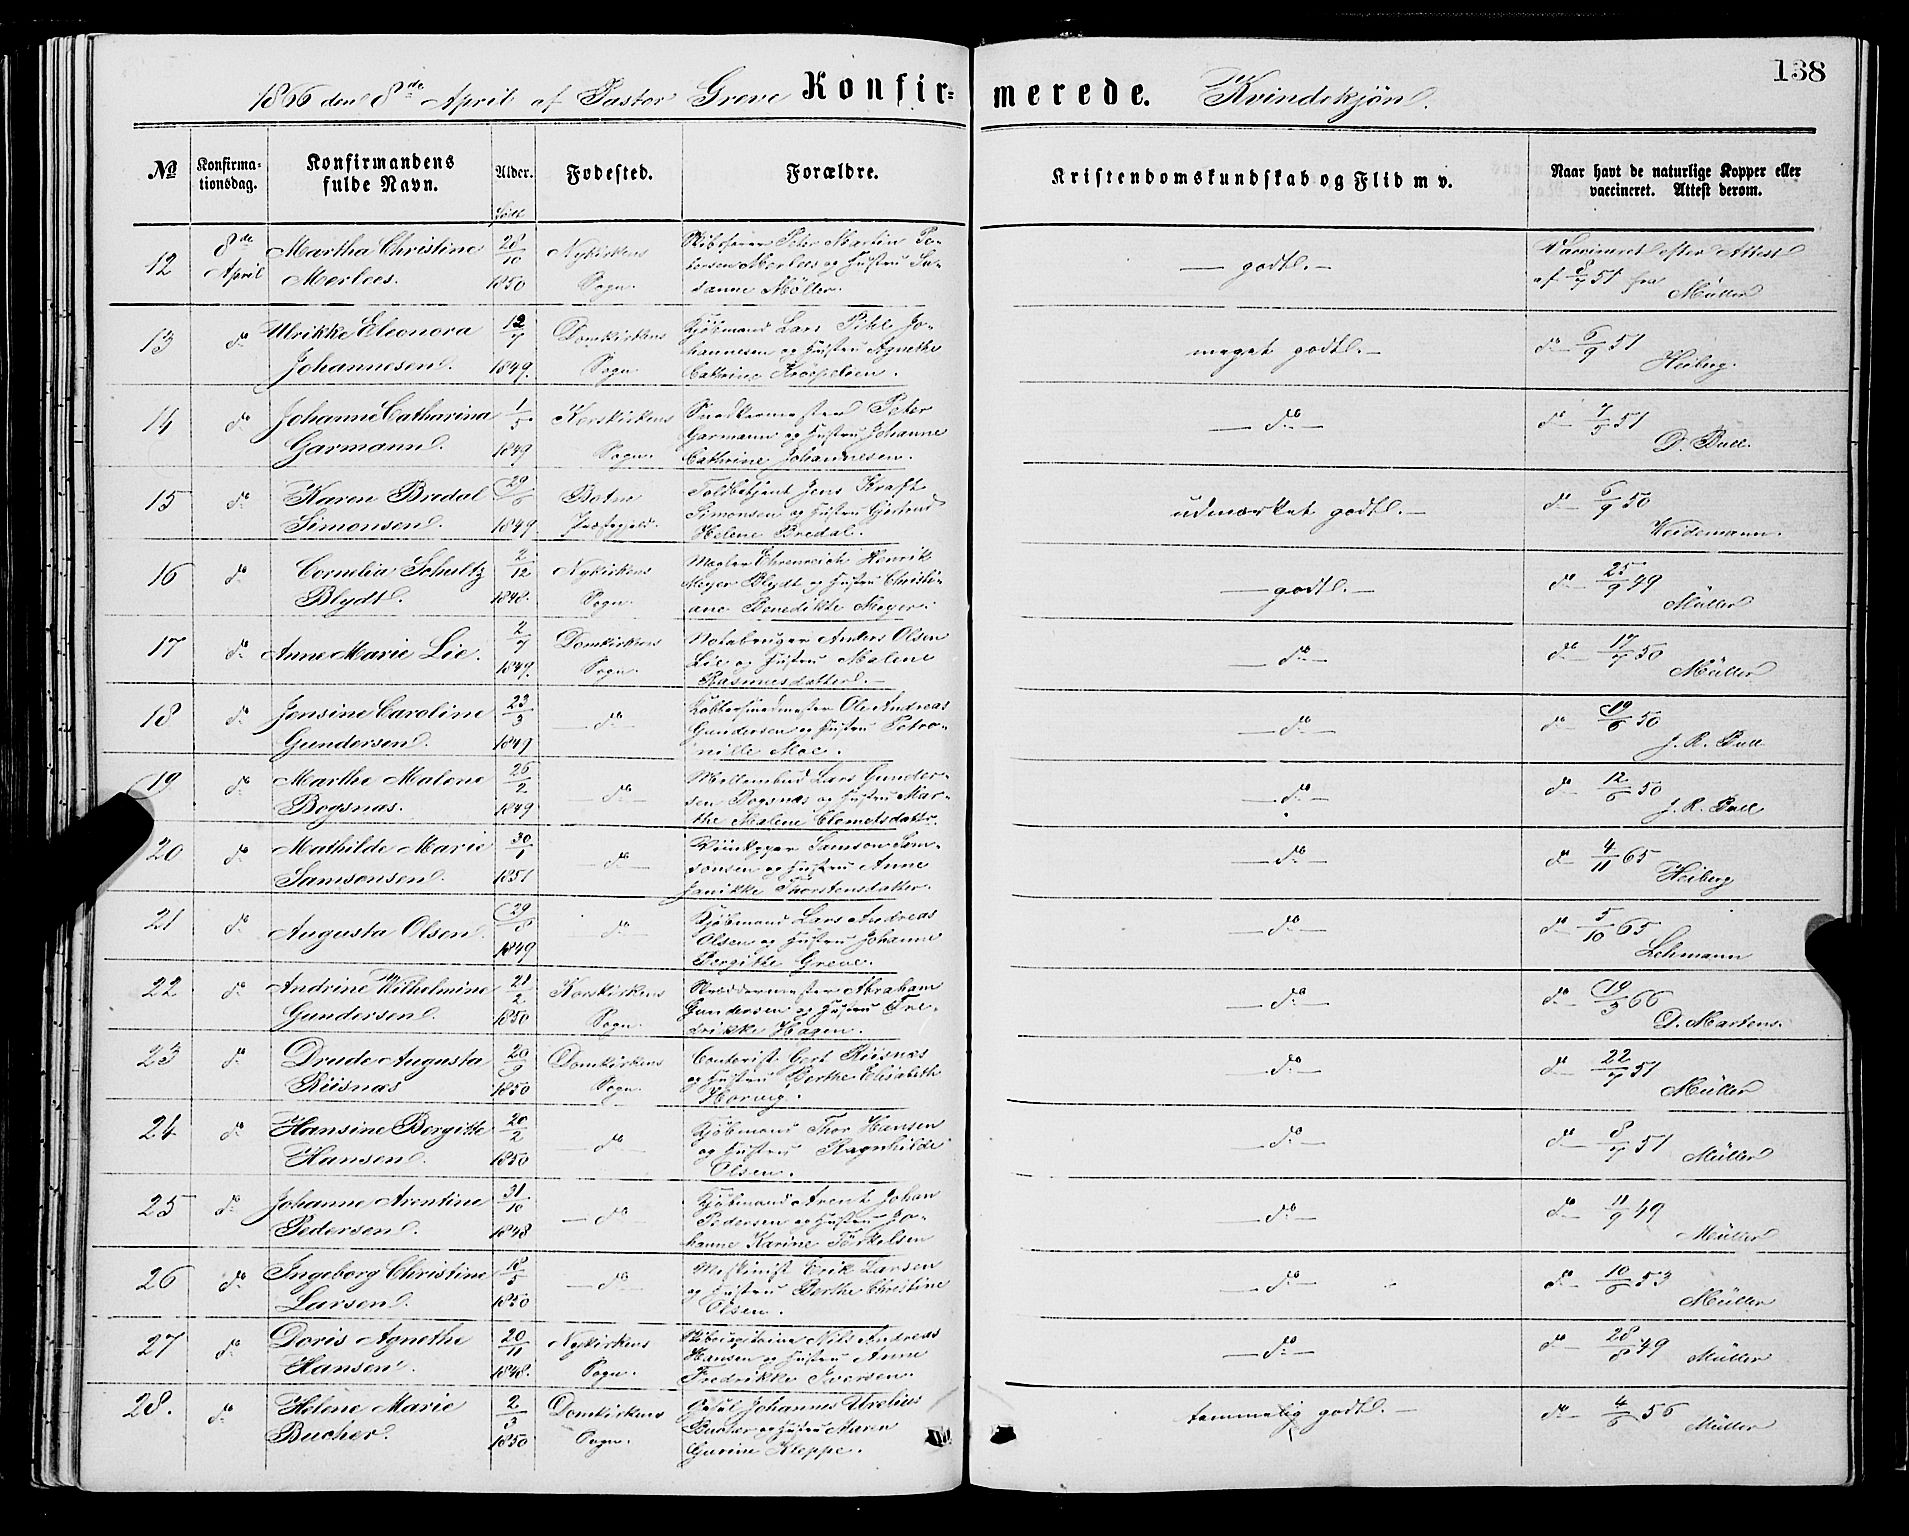 138
1866 den 8de April af Pastor Greve Konfir= merede. Kvindekjøn.
No Konfirma= tionsdag. Konfirmandens fulde Navn. Alder. Fødested. Forældre. Kristendomskundskab og Flid m v. Naar havt de naturlige Kopper eller vaccineret. Attest derom.
født
12 8de April Martha Christine 28/10 Nykirkens Peter Martin Pe- — godt. — Vaccineret efter Attest
Merlees. 1850 Sogn. dersen Merlees og Hustru Su- af 8/7 51 fra
sanne Møller. Müller
13 do Ulrikke Eleonora 12/7 Domkirkens Kjøbmand Lars Pihl Jo- meget godt. — do 6/9 51
Johannesen. 1849. Sogn. hannesen og Hustru Agnethe Heiberg.
Cathrine
14 do Johanne Catharina 1/5 Korskirkens Snedkermester Peter — do — do 7/5 51
Garmann. 1849 Sogn. Garmann og Hustru Johanne D. Bull.
Cathrine Johannesen.
15 do Karen Bredal 29/6 Botne Toldbetjent Jens Kraft udmærket godt. — do 6/9 50
Simonsen. 1849. Præstegjeld. Simonsen og Hustru Gjertrud Weidemann.
Helene Bredal.
16 do Cornelia Schultz 2/12 Nykirkens Mægler Ehrenreich Henrik — godt. — do 25/9 49
Blydt. 1848. Sogn. Meyer Blydt og Hustru Christi- Müller
ane Benedikte Meyer.
17 do Anne Marie Lie. 2/7 Domkirkens Notabruger Anders Olsen — do — do 17/7 50
1849. Sogn. Lie og Hustru Malene Müller
Rasmusdatter. —
18 do Jensine Caroline 23/3 — do — Kobbersmedmester Ole Andreas — do — do 19/6 50
Gundersen. 1849 Gundersen og Hustru Petro- J. R. Bull
nille Moe.
19 do Marthe Malene 26/2 — do — Mellembud Lars Gunder- — do — do 12/6 50
Bogsnæs. 1849 sen Bogsnæs og Hustru Mar- J. R. Bull
the Malene Clemetsdatter.
20 do Mathilde Marie 30/1 — do — Samson Sam- — do — do 4/11 65
Samsonsen. 1851 sonsen og Hustru Anne Heiberg
Janikke Thorstensdatter.
21 do Augusta Olsen. 29/8 — do — Kjøbmand Lars Andreas — do — do 5/10 65
1849 Olsen og Hustru Johanne Lehmann
Bergithe Greve.
22 do Andrine Wilhelmine 21/2 Korskirkens Skræddermester Abraham — do — do 19/3 66
Gundersen. 1850 Sogn. Gundersen og Hustru Fre- D. Martens.
drikke Hagen.
23 do Drude Augusta 20/9 Domkirkens Contorist Gert Riisnæs — do — do 22/7 51
Riisnæs 1850 Sogn. og Hustru Berthe Elisabeth Müller
Horvig.
24 do Hansine Bergitte 20/2 — do — Kjøbmand Thor Hansen — do — do 8/7 51
Hansen. 1850 og Hustru Ragnhilde Müller
Olsen.
25 do Johanne Arentine 31/10 — do — Kjøbmand Arent Johan — do — do 11/9 49
Pedersen. 1848 Pedersen og Hustru Jo- Müller
hanne Karine Törkelsen
26 do Ingeborg Christine 18/5 — do — Maskinist Erik Larsen — do — do 10/6 53
Larsen. 1850 og Hustru Berthe Christine Müller
Olsen.
27 do Doris Agnethe 20/11 Nykirkens Nils Andreas — do — do 28/8 49
Hansen. 1848. Sogn. Hansen og Hustru Anne Müller
Fredrikke Iversen.
28. do Helene Marie 2/3 Domkirkens Johannes temmelig godt. — do 4/6 56
Bucher. 1850 Sogn. Bucher og Hustru Maren Müller
Gurine Kleppe.